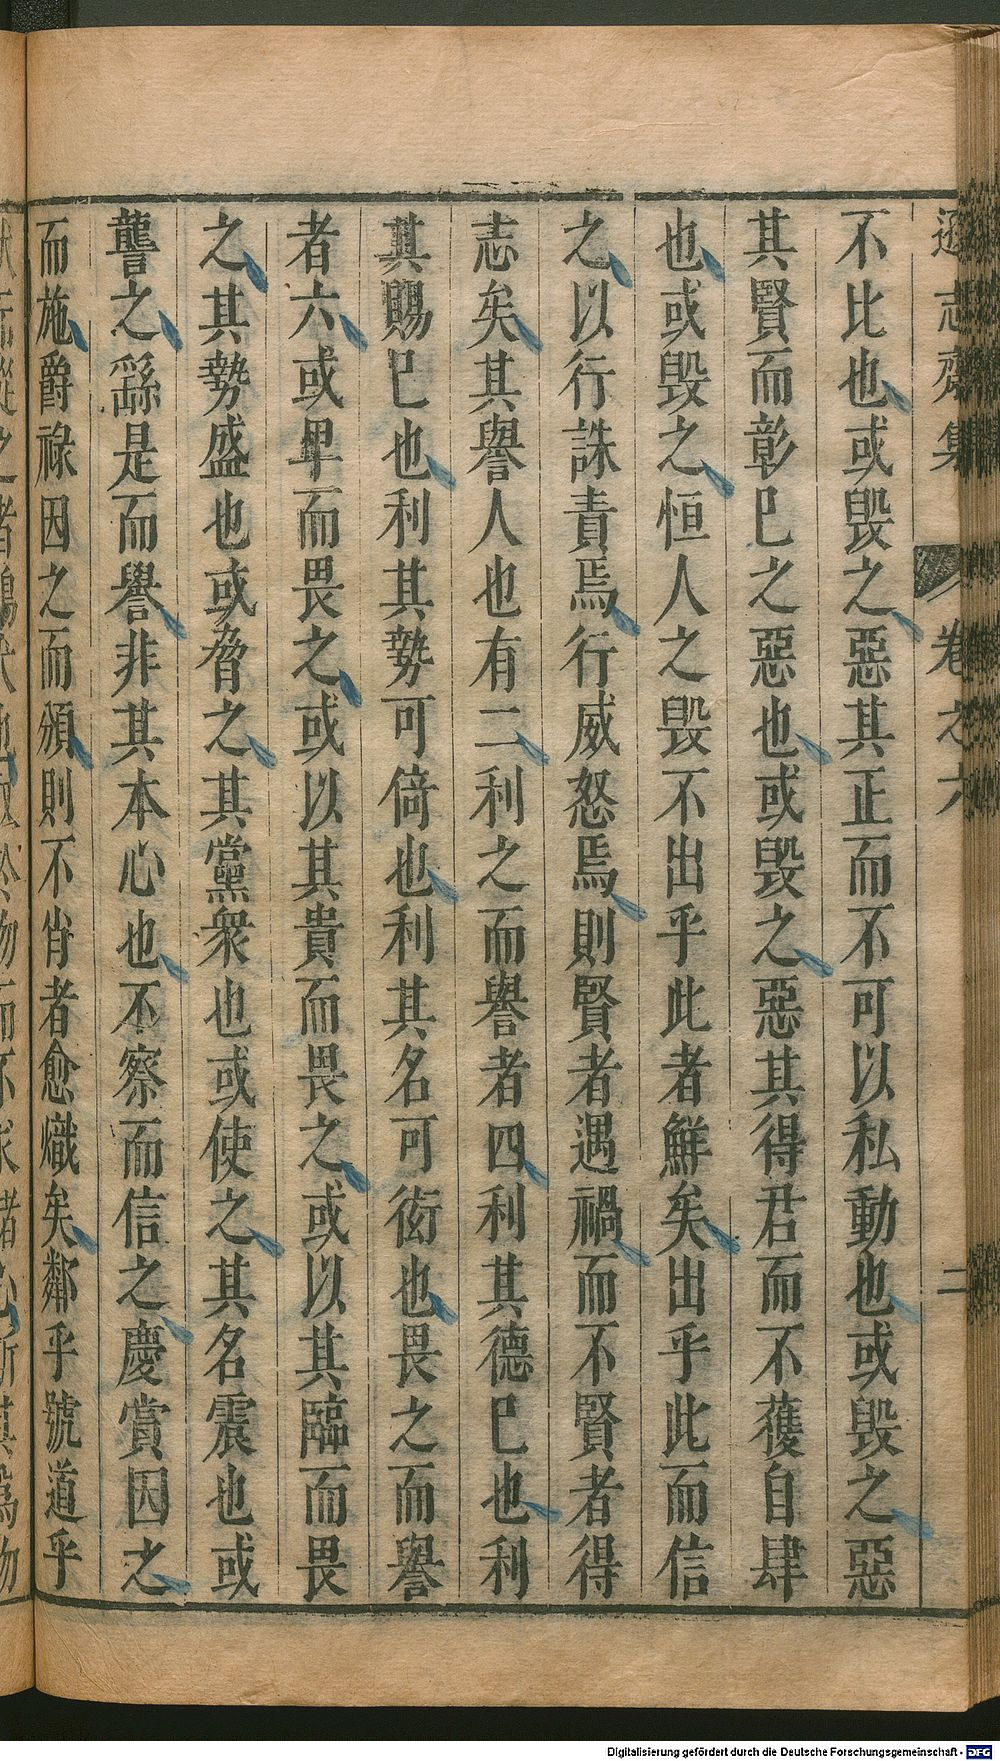 遜志齋集 卷之六 二
不比也或毀之惡其正而不可以私動也或毀之惡
其賢而彰巳之惡也或毀之惡其得君而不獲自肆
也或毀之恒人之毀不出乎此者鮮矣出乎此而信
之以行誅責焉行威怒焉則賢者遇禍而不賢者得
志矣其譽人也有二利之而譽者四利其德巳也利
其賜巳也利其勢可倚也利其名可衒也畏之而譽
者六或卑而畏之或以其貴而畏之或以其臨而畏
之其勢盛也或脅之其黨衆也或使之其名震也或
讋之繇是而譽非其本心也不察而信之慶賞因之
而施爵祿因之而頒則不肖者愈熾矣鄰乎號道乎
Digitalisierung gefördert durch die Deutsche Forschungsgemeinschaft - DFG